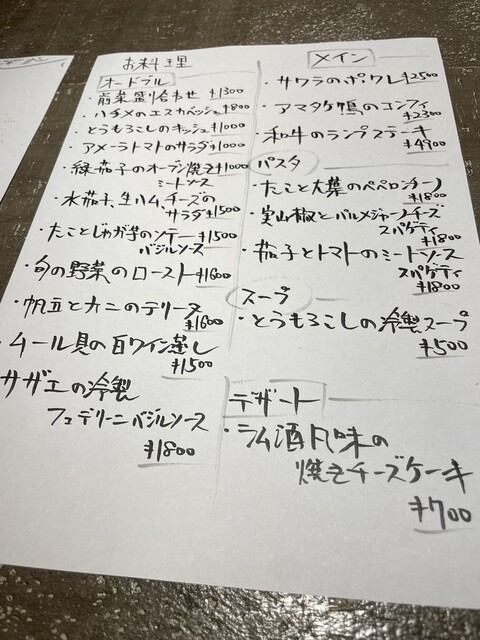 お料理
オードブル
・前菜盛り合わせ ¥1300
・ハチメのエスカベッシュ ¥800
・とうもろこしのキッシュ ¥1000
・アメーラトマトのサラダ ¥1000
・緑茄子のオーブン焼き ¥1000
ミートソース
・水茄子、生ハム、チーズの
サラダ ¥1500
・たことじゃが芋のソテー ¥1500
バジルソース
・旬の野菜のロースト ¥1600
・帆立とカニのテリーヌ
¥1600
・ムール貝の白ワイン蒸し
¥1500
サザエの冷製
フェデリーニバジルソース
¥1800
メイン
・サワラのポワレ ¥2500
・アマタケ鴨のコンフィ
¥2300
・和牛のランプステーキ
¥4900
パスタ
・たこと大葉のペペロンチーノ
¥1800
・実山椒とパルメジャーノチーズ
スパゲティ
¥1800
・茄子とトマトのミートソース
スパゲティ
¥1800
スープ
・とうもろこしの冷製スープ
¥500
デザート
・ラム酒風味の
焼きチーズケーキ
¥700